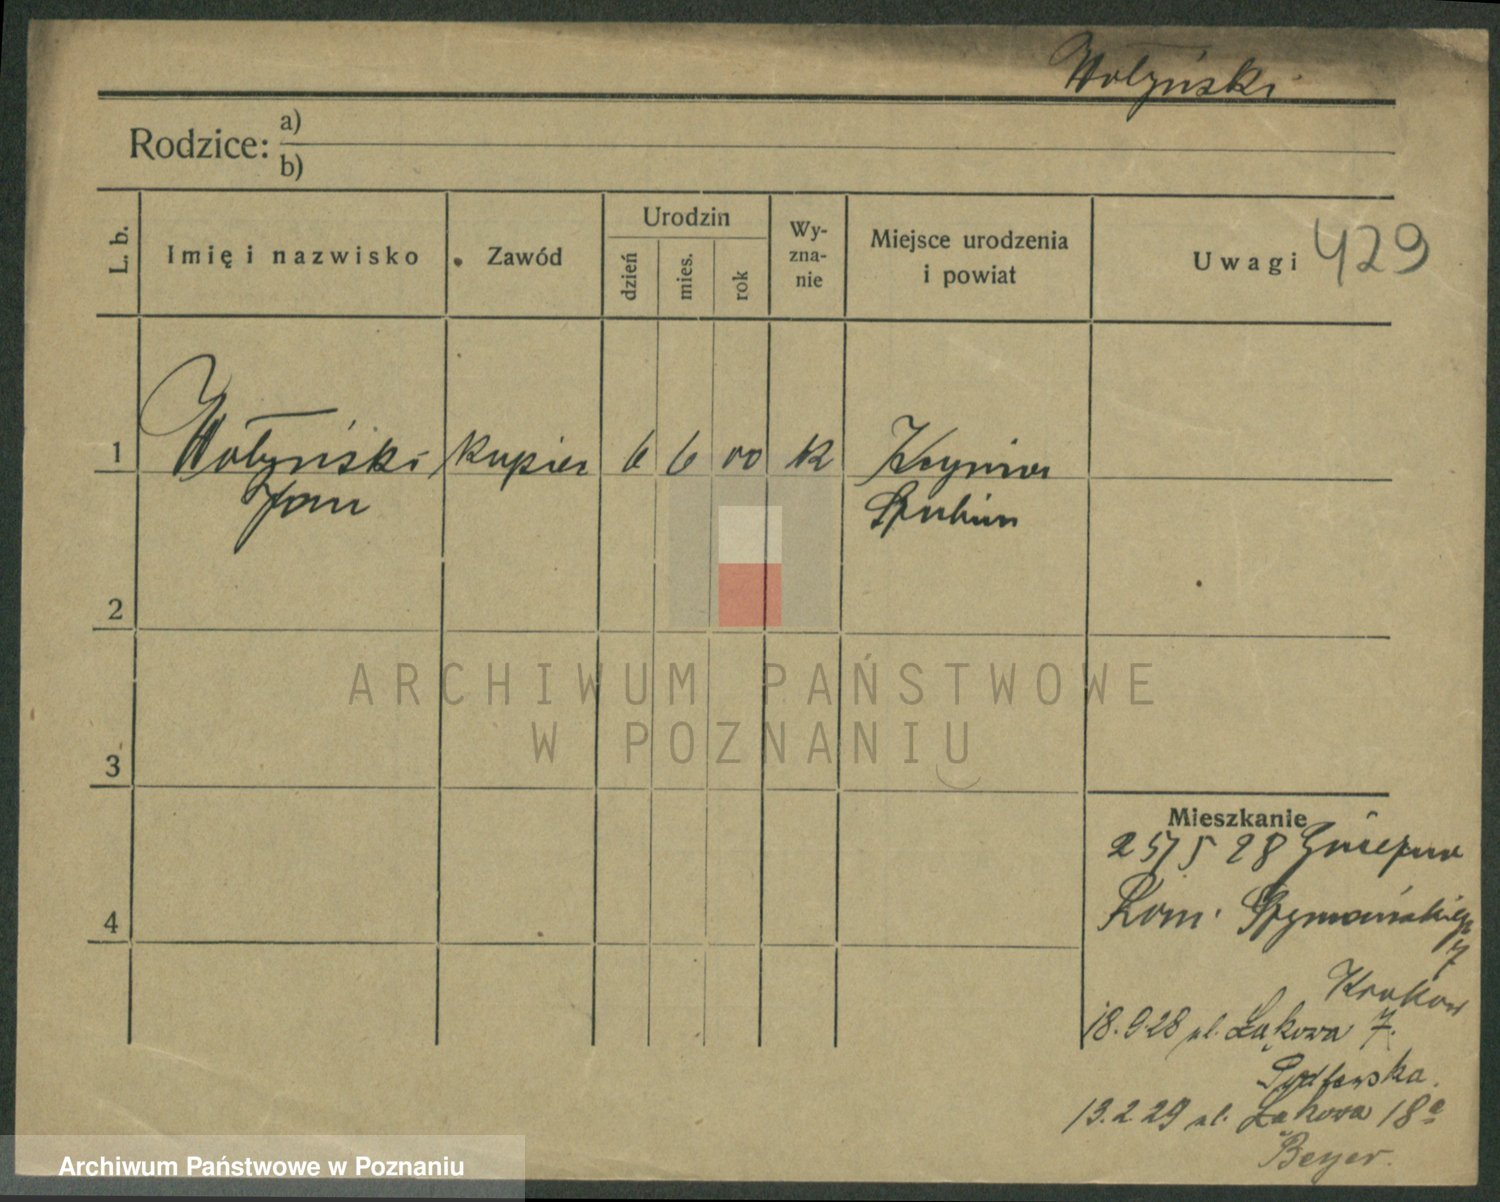 Wołyński
Rodzice: a)
b)
L. b.
Imię i nazwisko
Zawód
Urodzin
dzień
mies.
rok
Wy-
zna-
nie
Miejsce urodzenia
i powiat
Uwagi 429
1 Wołyński kupiec 6 6 00 k Kcynia
Jan Szubin
2
3
4
Mieszkanie
28 Gniezno
Kom. Szymańskiego
7
Krakow
18.9.28 ul. Łąkowa 7.
13.2.29 ul. Łąkowa 18a
Beyer.
ARCHIWUM PAŃSTWOWE
W POZNANIU
Archiwum Państwowe w Poznaniu